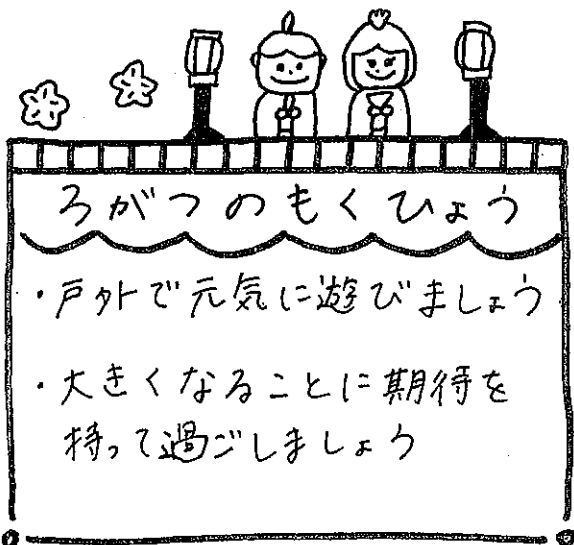 3がつのもくひょう
・戸外で元気に遊びましょう
・大きくなることに期待を
持って過ごしましょう